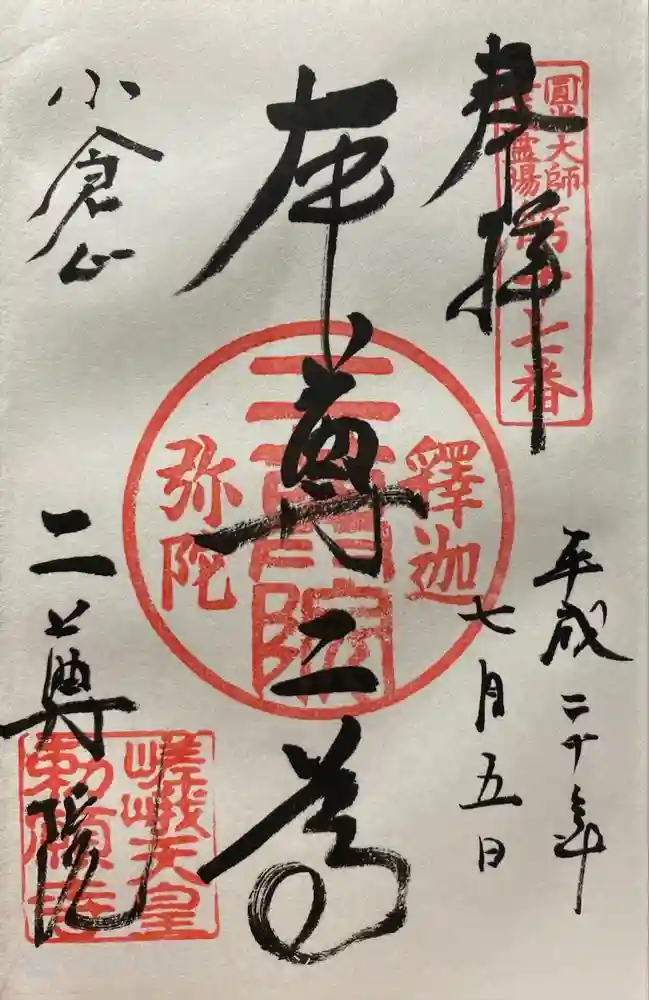 奉拝
圓光大師
霊場
第十七番
平成二十年
七月五日
本尊二尊
釋迦
二尊院
弥陀
小倉山
二尊院
嵯峨天皇
勅願寺